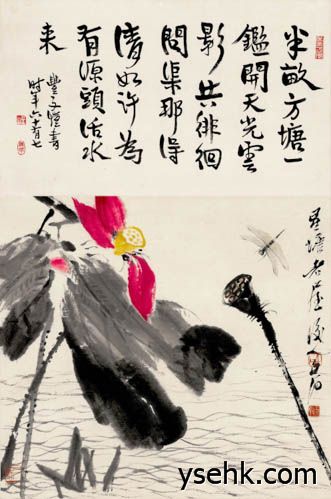 半畝方塘一
鑑開天光雲
影共徘徊
問渠那得
清如許為
有源頭活水
来
豐子愷書
时年六十有七
星塘老屋後人白石
ysehk.com